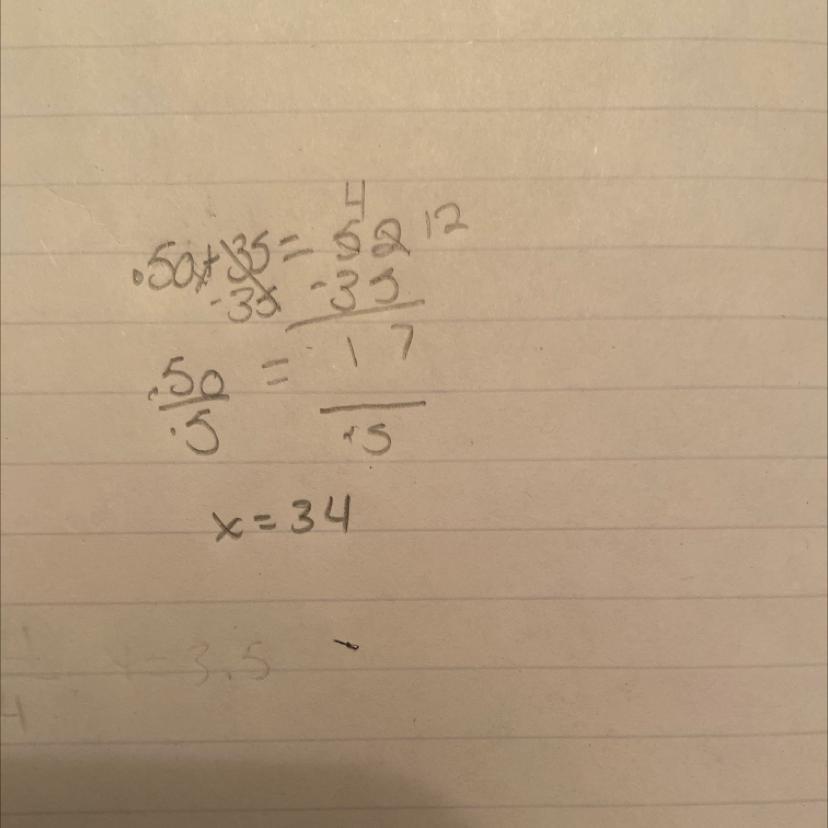 4
.50x+35=52 12
-35 -35
.50 = 17
.5 .5
x=34
3.5
4